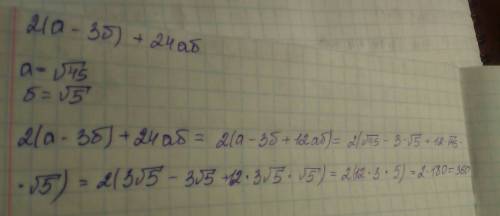 2(а - 3б) + 24аб
а = √45
б = √5
2(а - 3б) + 24аб = 2(а - 3б + 12аб) = 2(√45 - 3·√5 + 12·√45·
·√5) = 2(3√5 - 3√5 + 12·3√5·√5) = 2(12·3·5) = 2·180 = 360